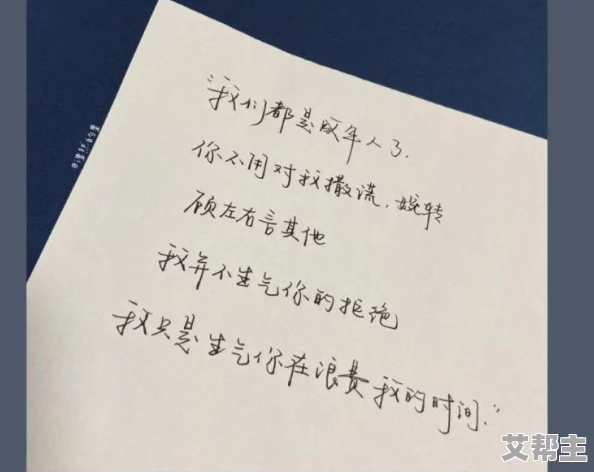 “我们都是成年人了.
你不用对我撒谎.婉转
顾左右言其他
我并不生气你的拒绝
我只是生气你在浪费我的时间.”
艾帮主